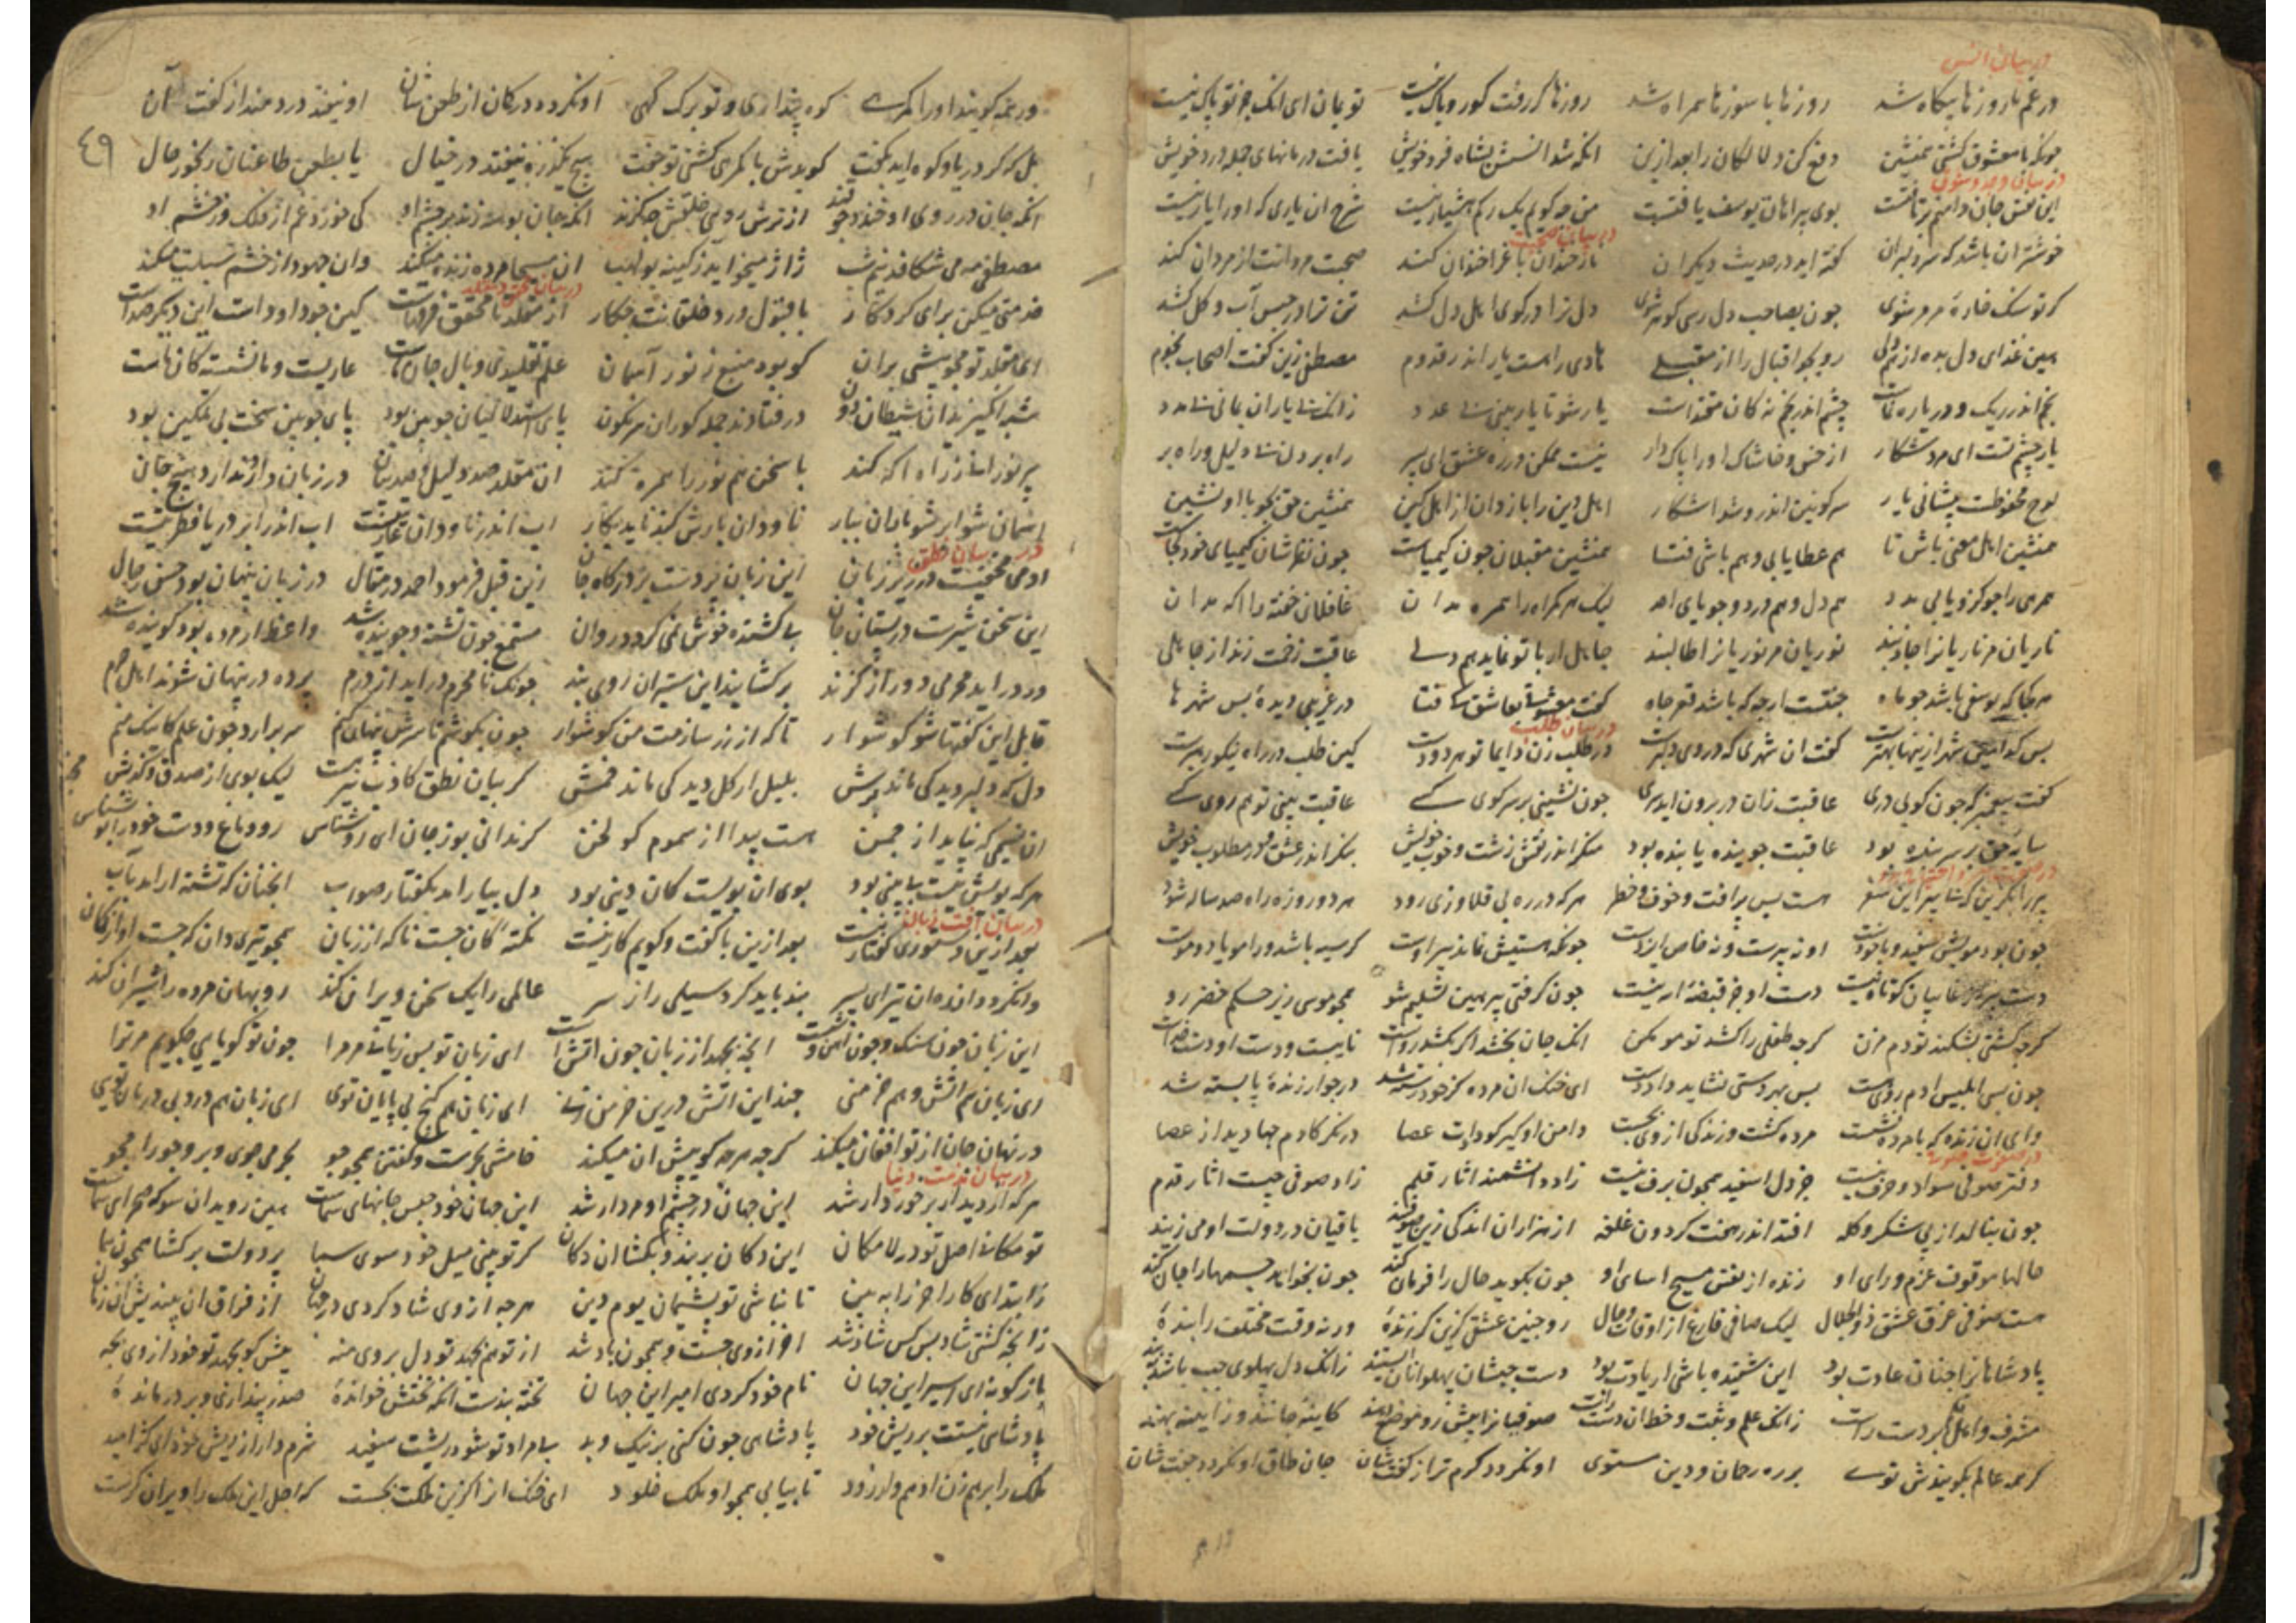 در بیان انس
در غم ما روزها بیگاه شد روزها با سوزها همراه شد روزها گر رفت گو رو باک نیست تو بمان ای انک جز تو پاک نیست
چونکه با معشوق گشتی همنشین دفع کن دلالگان را بعد ازین انکه شد انسش بشاه فرد خویش یافت درمانهای جمله درد خویش
این نفس جان دامنم برتافتست بوی پیراهان یوسف یافتست من چه گویم یک رگم هشیار نیست شرح ان یاری که او را یار نیست
در بیان صحبت
خوشتر ان باشد که سر دلبران گفته اید در حدیث دیگران نار خندان باغ را خندان کند صحبت مردانت از مردان کند
گر تو سنک خاره و مرمر شوی چون بصاحب دل رسی گوهر شوی دل ترا در کوی اهل دل کشد تن ترا در حبس آب و گل کشد
هین غذای دل بده از هم دلی رو بجو اقبال را از مقبلی هادی راهست یار اندر قدوم مصطفی زین گفت اصحابی نجوم
نجم اندر ریک و دریا رهنماست چشم اندر نجم نه کان مقتداست یار شو تا یار بینی بی عدد زانک بی یاران بمانی بی مدد
یار چشم تست ای مرد شکار از خس و خاشاک او را پاک دار نیست ممکن در ره عشق ای پسر راه بردن بی دلیل و راه بر
لوح محفوظست پیشانی یار سر کونین اندرو شد اشکار اهل دین را باز دان از اهل کین همنشین حق بجو با او نشین
همنشین اهل معنی باش تا هم عطا یابی و هم باشی فتا همنشین مقبلان چون کیمیاست چون نظرشان کیمیای خود کجاست
همرهی را جو کزو یابی مدد هم دل و هم درد و جویای احد لیک هر گمراه را همره مدان غافلان خفته را اگه مدان
ناریان مر ناریان را جاذبند نوریان مر نوریان را طالبند جاهل ار با تو نماید هم دلی عاقبت زخمت زند از جاهلی
هر کجا که یوسفی باشد چو ماه جنتست ارچه که باشد قعر چاه گفت معشوقی بعاشق کای فتا در غریبی دیده بس شهرها
در بیان طلب
بس کدامین شهر از اینها بهترست گفت ان شهری که در وی دلبرست در طلب زن دایما تو هر دو دست کین طلب در راه نیکو رهبرست
گفت پیغمبر که چون کوبی دری عاقبت زان در برون اید سری چون نشینی بر سر کوی کسی عاقبت بینی تو هم روی کسی
سایه حق بر سر بنده بود عاقبت جوینده یابنده بود منکر اندر نقش زشت و خوب خویش بنگر اندر عشق و در مطلوب خویش
پیر را بگزین که بی پیر این سفر هست بس پر افت و خوف و خطر هر که در ره بی قلاوزی رود هر دو روزه راه صد ساله شود
چون بود مویش سفید و با خودست او نه پیرست و نه خاص ایزدست چونکه هستیش نماند پیر اوست گر سیه باشد ورا مو یا دوموست
دست پیر از غایبان کوتاه نیست دست او جز قبضه الله نیست چون گرفتی پیر هین تسلیم شو همچو موسی زیر حکم خضر رو
گرچه کشتی بشکند تو دم مزن گرچه طفلی را کشد تو مو مکن انک جان بخشد اگر بکشد رواست نایبست و دست او دست خداست
چون بسی ابلیس ادم روی هست بس بهر دستی نشاید داد دست ای خنک ان مرده کز خود رسته شد در جوار زنده پابسته شد
وای ان زنده که با مرده نشست مرده گشت و زندگی از وی بجست دامن او گیر کو دادت عصا در نگر کادم چها دید از عصا
دفتر صوفی سواد و حرف نیست جز دل اسفید همچون برف نیست زاد دانشمند اثار قلم زاد صوفی چیست اثار قدم
چون بنالد زار بی شکر و گله افتد اندر هفت گردون غلغله از هزاران اندکی زین صوفیند باقیان در دولت او می زیند
حالها موقوف عزم و رای او زنده از نفس مسیح اسای او چون بگوید حال را فرمان کند چون بخواهد جسمها را جان کند
هست صوفی غرق عشق ذوالجلال لیک صافی فارغ از اوقات و حال رو چنین عشقی گزین گر زنده ورنه وقت مختلف را بنده
پادشاهانرا چنان عادت بود این شنیده باشی ار یادت بود دست چپشان پهلوانان ایستند زانک دل پهلوی چپ باشد ببند
مشرف و اهل قلم بر دست راست زانک علم و ثبت و خط ان دست راست صوفیانرا پیش رو موضع دهند کاینه جانند و ز ایینه بهند
گر همه عالم بگویندش توی بر ره رحمان و دین مستوی او نگردد گرم تر از گفتشان جان طاق او نگردد جفتشان
٤٩
ور همه گویند او را گمرهی کوه پنداری و تو برک کهی او نگردد در گمان از طعن شان او نیفتد دردمند از گفت آن
بل که گر دریا و کوه اید بگفت گویدش با گمرهی گشتی تو جفت هیچ یک ذره نیفتد در خیال یا بطعن طاعنان رنجور حال
انکه جان در روی او خندد چو قند از ترش رویی خلقش چه گزند انکه جان بوسه زند بر چشم او کی خورد غم از فلک وز خشم او
مصطفی مه می شکافد نیم شب ژاژ میخاید ز کینه بولهب ان مسیحا مرده زنده میکند وان جهود از خشم سبلت میکند
خدمتی میکن برای کردگار با قبول و رد خلقانت چه کار از مقلد تا محقق فرقهاست کین چو داودست این دیگر صداست
ای مقلد تو مجو پیشی بران کو بود منبع ز نور آسمان علم تقلیدی وبال جان ماست عاریست و ما نشسته کان ماست
در فتادند جمله کوران سرنگون پای استدلالیان چوبین بود پای چوبین سخت بی تمکین بود
پیر نورانی ز راه اگه کند با سخن هم نور را همره کند ان مقلد صد دلیل و صد بیان در زبان دارد ندارد هیچ جان
اسمان شو ابر شو باران ببار ناودان بارش کند ناید بکار اب اندر ناودان عاریتست اب اندر ابر و دریا فطرتیست
ادمی مخفیست در زیر زبان این زبان پرده ست بر درگاه جان زین قبل فرمود احمد در مقال در زبان پنهان بود حسن رجال
این سخن شیرست در پستان جان بی کشنده خوش نمی گردد روان مستمع چون تشنه و جوینده شد واعظ ار مرده بود گوینده شد
ور دراید محرمی دور از گزند برگشایند این ستیران روی بند چونک نامحرم دراید از درم پرده در پنهان شوند اهل حرم
قابل این گفتها شو گوشوار تا که از زر سازمت من گوشوار چون بکوشم تا سرش پنهان کنم سر برارد چون علم کاینک منم
دل که دلبر دید کی ماند ترش بلبل ار گل دید کی ماند خمش گر بیان نطق کاذب نیز هست لیک بوی از صدق و کذبش مخبرست
ان نسیمی که بیاید از چمن هست پیدا از سموم گولخن گر ندانی بوز جان ای روشناس رو دماغ و دست خود را بو شناس
هر که بویش نیست بی بینی بود بوی ان بویست کان دینی بود دل بیاراند بگفتار صواب انچنان که تشنه اراند باب
در بیان آفت زبان
بعد ازین دستوری گفتار نیست بعد ازین با گفت و گویم کار نیست نکته کان جست ناگه از زبان همچو تیری دان که جست او از کمان
وا نگردد از ره ان تیر ای پسر بند باید کرد سیلی را ز سر عالمی را یک سخن ویران کند روبهان مرده را شیران کند
این زبان چون سنک و چون آهن وشست انچه بجهد از زبان چون اتش است ای زبان تو بس زیانی مر مرا چون تو گویایی چه گویم مر ترا
ای زبان هم اتش و هم خرمنی چند این اتش درین خرمن زنی ای زبان هم گنج بی پایان توی ای زبان هم درد بی درمان توی
در نهان جان از تو افغان میکند گرچه هر چه گوییش ان میکند خامشی بحرست و گفتن همچو جو بحر می جوی و برو جو را مجو
در بیان مذمت دنیا
هر که از دیدار برخوردار شد این جهان در چشم او مردار شد این جهان خود حبس جانهای شماست هین روید ان سو که صحرای شماست
تو مکانی اصل تو در لامکان این دکان بربند و بگشا ان دکان گر تو بینی میل خود سوی سما پر دولت برگشا همچون هما
ز ابتدای کار اخر را ببین تا نباشی تو پشیمان یوم دین هرچه از وی شاد گردی در جهان از فراق ان بیندیش ان زمان
زانچه گشتی شاد بس کس شاد شد اخر از وی جست و همچون باد شد از تو هم بجهد تو دل بر وی منه پیش کو بجهد تو خود از وی بجه
باژگونه ای اسیر این جهان نام خود کردی امیر این جهان تخته بندست انکه تختش خوانده صدر پنداری و بر در مانده
پادشاهی نیستت بر ریش خود پادشاهی چون کنی بر نیک و بد بی مراد تو شود ریشت سفید شرم دار از ریش خود ای کژ امید
ملک را برهم زن ادهم وار زود تا بیابی همچو او ملک خلود ای خنک انرا کزین ملکت بجست که اجل این ملک را ویران گرست